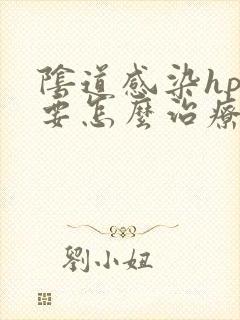 陰道感染hp
要怎麼治療
劉小妞